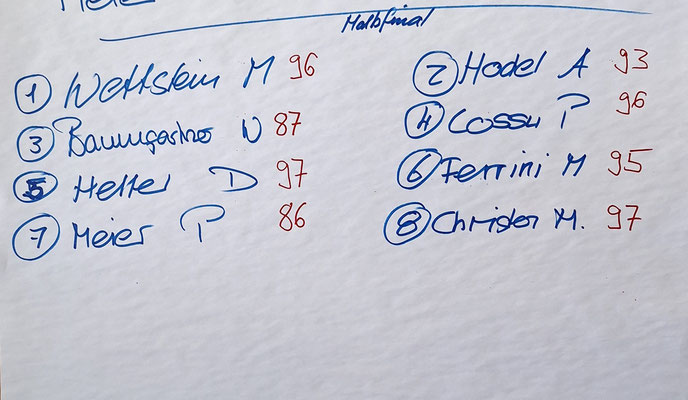 Halbfinal
① Wettstein M 96
③ Baumgartner N 87
⑤ Heller D 97
⑦ Meier P 86
② Hodel A 93
④ Cossu P 96
⑥ Ferrini M 95
⑧ Christen M. 97